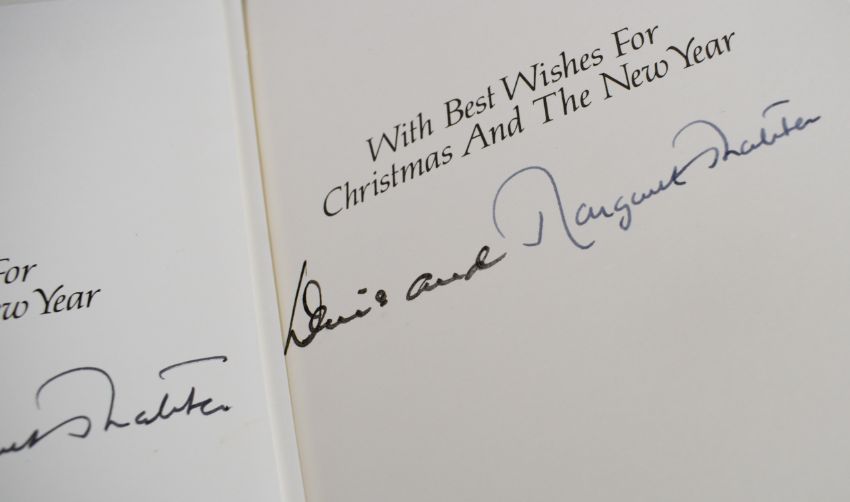 With Best Wishes For
Christmas And The New Year
Denis and Margaret Thatcher
For
New Year
Thatcher